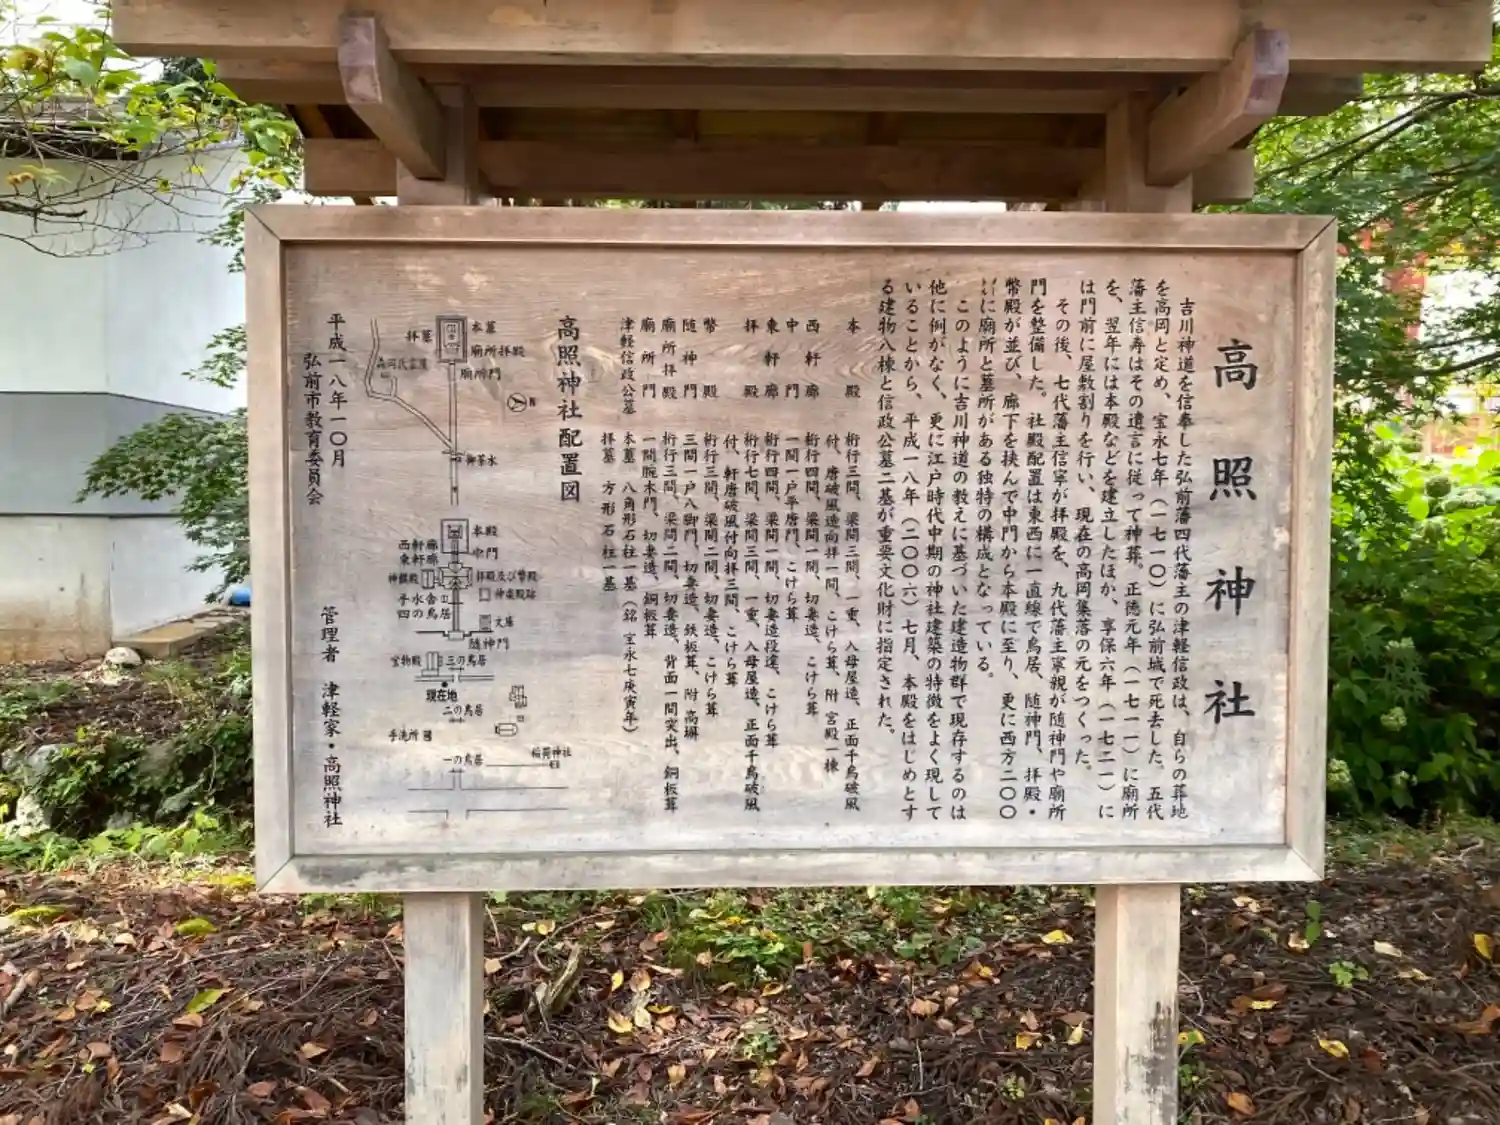 高照神社
吉川神道を信奉した弘前藩四代藩主の津軽信政は、自らの葬地
を高岡と定め、宝永七年（一七一〇）に弘前城で死去した。五代
藩主信寿はその遺言に従って神葬。正徳元年（一七一一）に廟所
を、翌年には本殿などを建立したほか、享保六年（一七二一）に
は門前に屋敷割りを行い、現在の高岡集落の元をつくった。
その後、七代藩主信寧が拝殿を、九代藩主寧親が随神門や廟所
門を整備した。社殿配置は東西に一直線で鳥居、随神門、拝殿・
幣殿が並び、廊下を挟んで中門から本殿に至り、更に西方二〇〇
㍍に廟所と墓所がある独特の構成となっている。
このように吉川神道の教えに基づいた建造物群で現存するのは
他に例がなく、更に江戸時代中期の神社建築の特徴をよく現して
いることから、平成一八年（二〇〇六）七月、本殿をはじめとす
る建物八棟と信政公墓二基が重要文化財に指定された。
本殿 桁行三間、梁間三間、一重、入母屋造、正面千鳥破風
付、唐破風造向拝一間、こけら葺、附 宮殿一棟
西軒廊 桁行四間、梁間一間、切妻造、こけら葺
中門 一間一戸平唐門、こけら葺
東軒廊 桁行四間、梁間一間、切妻造段違、こけら葺
拝殿 桁行七間、梁間三間、一重、入母屋造、正面千鳥破風
付、軒唐破風付向拝三間、こけら葺
幣殿 桁行三間、梁間二間、切妻造、こけら葺
随神門 三間一戸八脚門、切妻造、鉄板葺、附 高塀
廟所拝殿 桁行三間、梁間二間、切妻造、背面一間突出、銅板葺
廟所門 一間腕木門、切妻造、銅板葺
津軽信政公墓 本墓 八角形石柱一基（銘 宝永七庚寅年）
拝墓 方形石柱一基
高照神社配置図
本墓
拝墓
廟所拝殿
廟所門
御茶水
本殿
中門
西軒廊
東軒廊
拝殿及び幣殿
神饌殿
神楽殿跡
手水舎
四の鳥居
文庫
随神門
宝物殿
三の鳥居
現在地
二の鳥居
手洗所
稲荷神社
一の鳥居
平成一八年一〇月
弘前市教育委員会
管理者 津軽家・高照神社